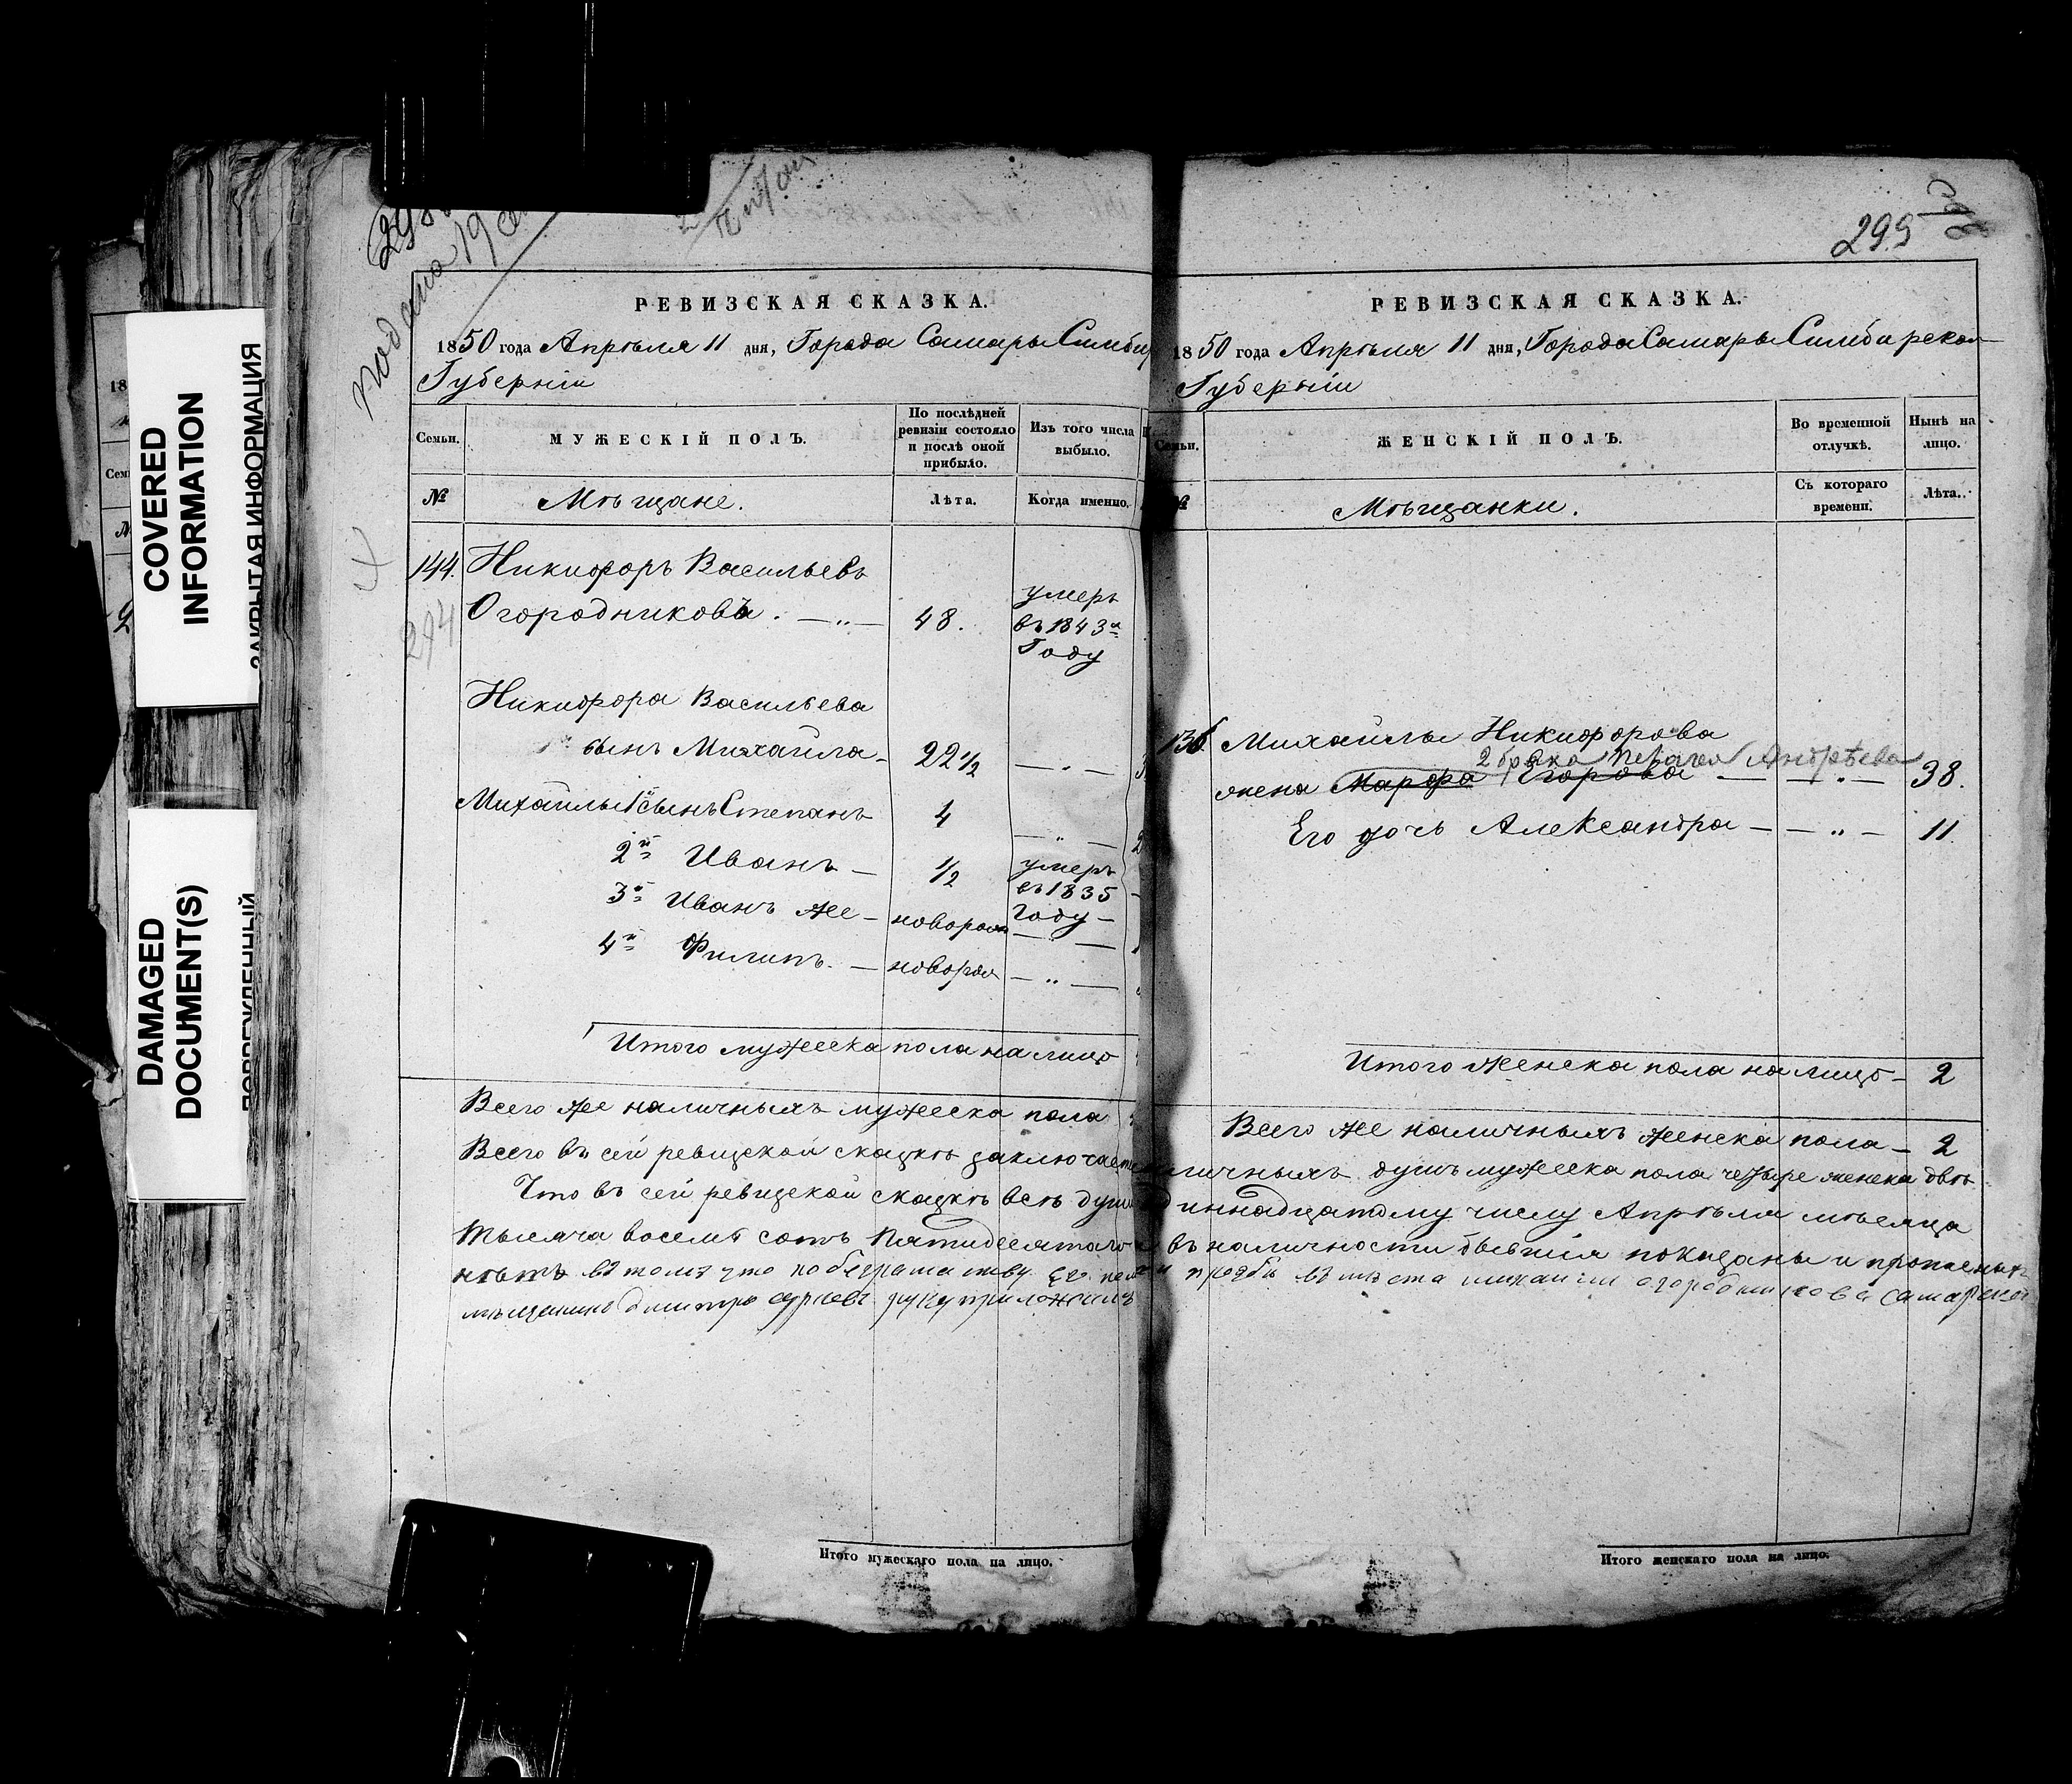 COVERED
INFORMATION
ЗАКРЫТАЯ ИНФОРМАЦИЯ
DAMAGED
DOCUMENT(S)
ПОВРЕЖДЕННЫЙ
18
Сем
298
Подана 19
РЕВИЗСКАЯ СКАЗКА.
1850 года Апрѣля 11 дня, Города Самары Симби
Губерніи
Семьи.
МУЖЕСКІЙ ПОЛЪ.
По послѣдней ревизіи состояло и послѣ оной прибыло.
Изъ того числа выбыло.
№
Мѣщане.
Лѣта.
Когда именно.
144. Никифоръ Васильевъ
Огородниковъ. — „ — 48. умеръ въ 1843м Году
294
Никифора Васильева
сынъ Михайла - 22 1/2 — „ —
Михайлы 1й сынъ Степанъ 4 — „ —
2й Иванъ — 1/2 умеръ въ 1835 Году —
3й Иванъ же — новорож — „ —
4й Филипъ. — новорож — „ —
Итого мужеска пола на лицо
Всего же наличныхъ мужеска пола
Всего въ сей ревизской сказкѣ заключает
Что въ сей ревизской сказкѣ всѣ души
Тысяча восемь сотъ Пятидесятаго
нѣтъ въ томъ что
мѣщанинъ дмитре руку приложилъ
Итого мужескаго пола на лицо.
299
РЕВИЗСКАЯ СКАЗКА.
1850 года Апрѣля 11 дня, Города Самары Симбирской
Губерніи
Семьи.
ЖЕНСКІЙ ПОЛЪ.
Во временной отлучкѣ.
Нынѣ на лицо.
№
Мѣщанки.
Съ котораго времени.
Лѣта.
136 Михайлы Никифорова
2 брака Андрѣева
жена Марфа Егорова — „ — 38.
Его дочь Александра — — „ — 11.
Итого женска пола на лицо — 2
Всего же наличныхъ женска пола — 2
личныхъ душъ мужеска пола четыре женска двѣ
диннадцатому числу Апрѣля мѣсяца
въ наличности бывшія показаны и прописныхъ
прозбѣ вмѣста михаилы огородникова самарской
Итого женскаго пола на лицо.